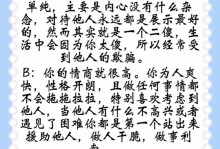 单纯，主要是内心没有什么杂
念，对待他人永远都是表示最好
的，然而其实就是一个二傻，生
活中会因为你太傻，所以经常受
到他人的欺骗。
B：你的情商就很高。你为人爽
快，性格开朗，且做任何事情都
不会拖拖拉拉，特别喜欢考虑到
他人，当他人有什么不高兴或者
遇见了困难你都是第一个站出来
援助他人，做人干脆，做事利